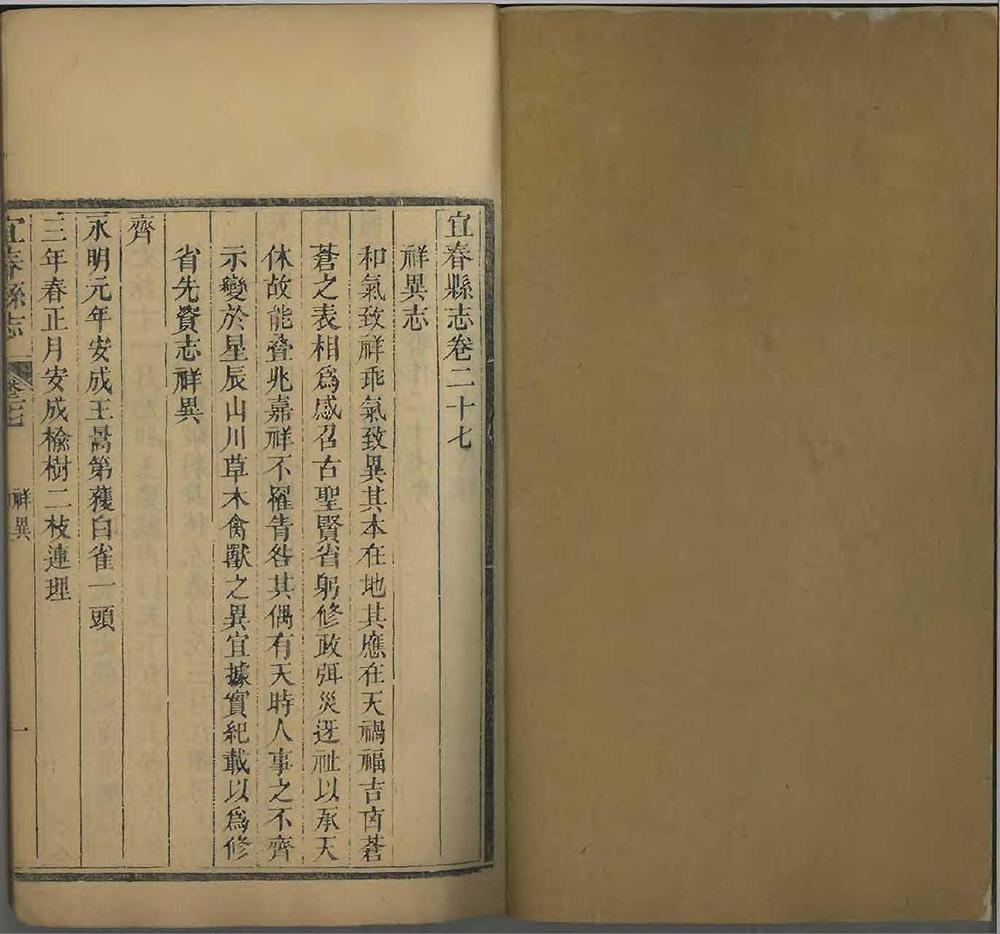 宜春縣志卷二十七
祥異志
和氣致祥乖氣致異其本在地其應在天禍福吉㐫蒼
蒼之表相爲感召古聖賢省躬修政弭災迓祉以承天
休故能疊兆嘉祥不罹眚咎其偶有天時人事之不齊
示變於星辰山川草木禽獸之異宜據實紀載以爲修
省先資志祥異
齊
永明元年安成王暠第獲白雀一頭
三年春正月安成楡樹二枝連理
宜春縣志
卷二十七
祥異
一